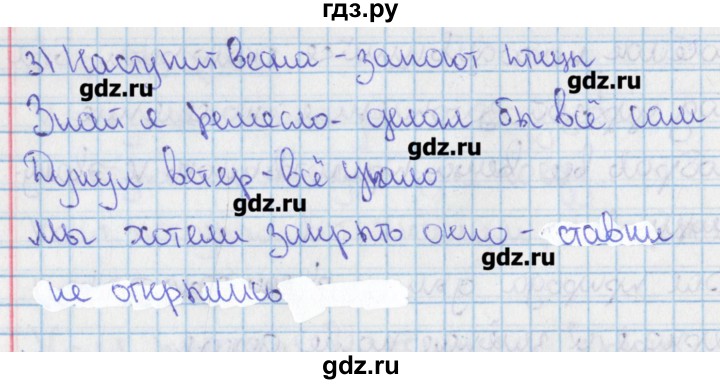 гдз.ру
3) Наступит весна - запоют птицы
gdz.ru
gdz.ru
Знай я ремесло - делал бы всё сам
gdz.ru
Дунул ветер - всё упало
gdz.ru
Мы хотели закрыть окно - ставни
gdz.ru
не открылись
gdz.ru